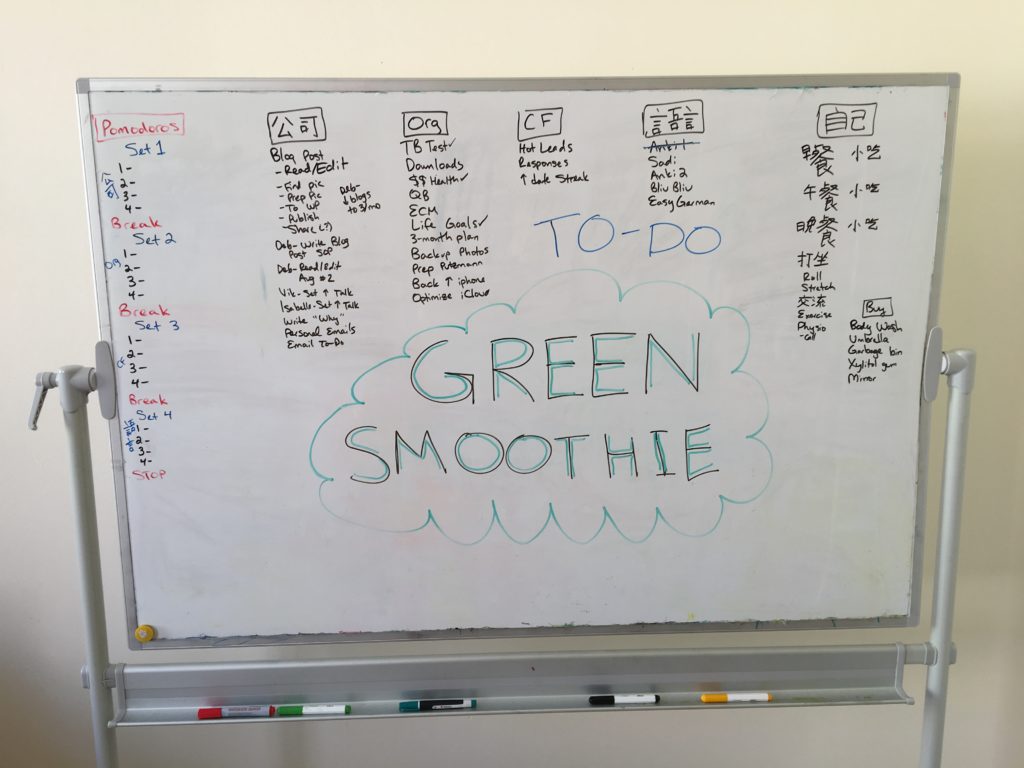 Pomodoros
Set 1
1-
2-
3-
4-
公司
Break
Set 2
1-
2-
3-
4-
Org
Break
Set 3
1-
2-
3-
4-
CF
Break
Set 4
1-
2-
3-
4-
STOP
公司
Blog Post
- Read/Edit
- Find pic
- Prep Pic
- To WP
- Publish
- Share (?)
Deb-
blogs
to
Deb - Write Blog
Post SOP
Deb - Read/Edit
Aug #2
Vik - Set ↑ Talk
Isabelle - Set ↑ Talk
Write "Why"
Personal Emails
Email To-Do
Org
TB Test ✓
Downloads
$$ Health ✓
QB
ECM
Life Goals ✓
3-month plan
Backup Photos
Prep
Back ↑ iphone
Optimise iCloud
CF
Hot Leads
Responses
↑ date Streak
言語
Anki 1
Sadi
Anki 2
Bliu Bliu
Easy German
TO-DO
GREEN
SMOOTHIE
自己
早餐 小吃
午餐 小吃
晚餐 小吃
打坐
Roll
Stretch
交流
Exercise
Physio
- Call
Buy
Body Wash
Umbrella
Garbage bin
Xylitol gum
Mirror